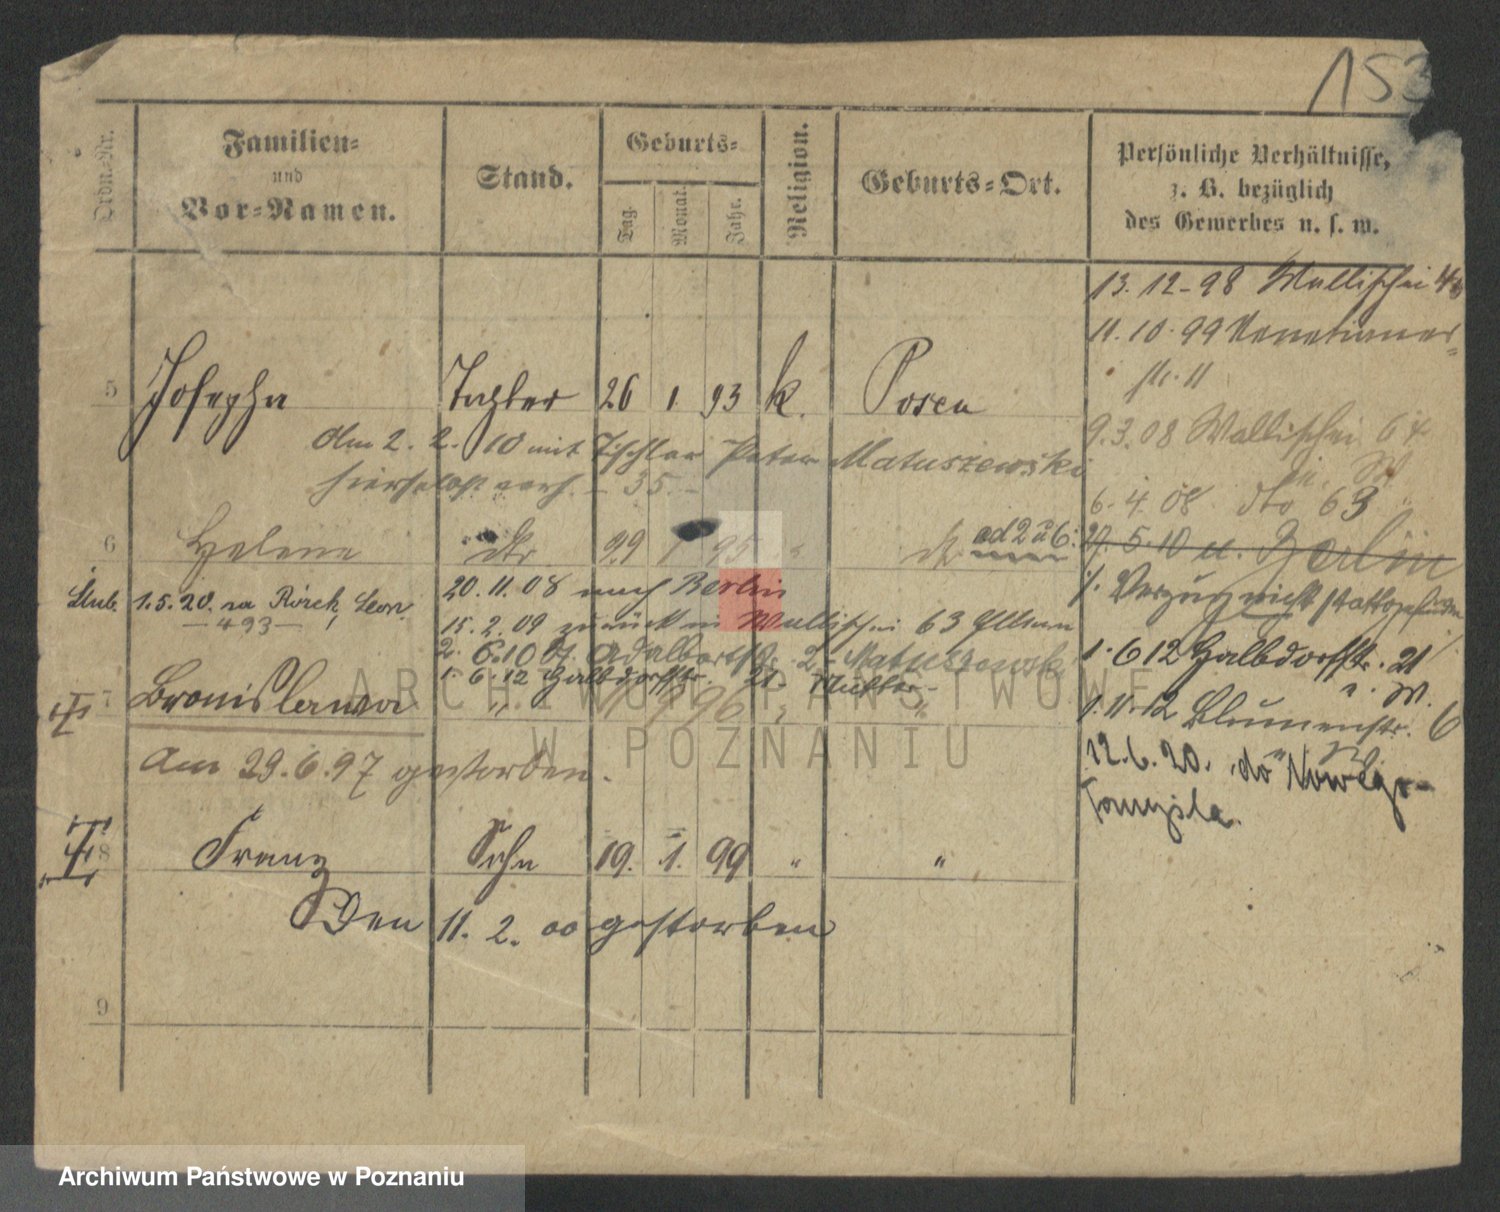 153
Ordn.-Nr.
Familien-
und
Vor-Namen.
Stand.
Geburts-
Tag.
Monat.
Jahr.
Religion.
Geburts-Ort.
Persönliche Verhältnisse,
z. B. bezüglich
des Gewerbes u. s. w.
13. 12. 98 Wallischei
11. 10. 99 Venetianer-
str. 11
5 Josepha Tochter 26 1 93 k. Posen
9.3.08 Wallischei 64
Am 2. 2. 10 mit Tischler Peter Matuszewski
hierselbst verh. - 35. -
6. 4. 08 dto 63
6 Helene dto 29 1 95 " ad 2 u 6:
27. 5. 10 u. Berlin
20. 11. 08 nach Berlin
Verzug nicht stattgefunden
Ślub. 1. 5. 20. za Rozek, Leon.
- 493 -
15. 2. 09 zurück Wallischei 63 Eltern
2. 6. 10 St. Adalbertstr. 2 - Matuszewski
1. 6 12 Halbdorffstr. 21
1. 6. 12 Halbdorffstr. 21. Mutter.
7 Bronislawa " 96 " "
1. 11. 12 Blumenstr. 6
Am 29. 6. 97 gestorben.
12. 6. 20. do Nowego-
Tomyśla.
8 Franz Sohn 19. 1. 99 " "
Den 11. 2. 00 gestorben
9
ARCHIWUM PAŃSTWOWE
W POZNANIU
Archiwum Państwowe w Poznaniu